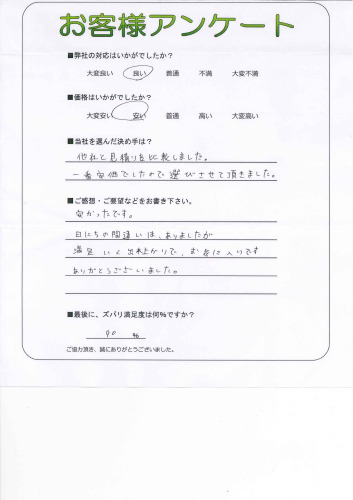 お客様アンケート
■弊社の対応はいかがでしたか？
大変良い 良い 普通 不満 大変不満
■価格はいかがでしたか？
大変安い 安い 普通 高い 大変高い
■当社を選んだ決め手は？
他社と見積りを比較しました。
一番安価でしたので選びさせて頂きました。
■ご感想・ご要望などをお書き下さい。
安かったです。
日にちの間違いは、ありましたが
満足いく出来上がりで、お気に入りです
ありがとうございました。
■最後に、ズバリ満足度は何％ですか？
90 %
ご協力頂き、誠にありがとうございました。